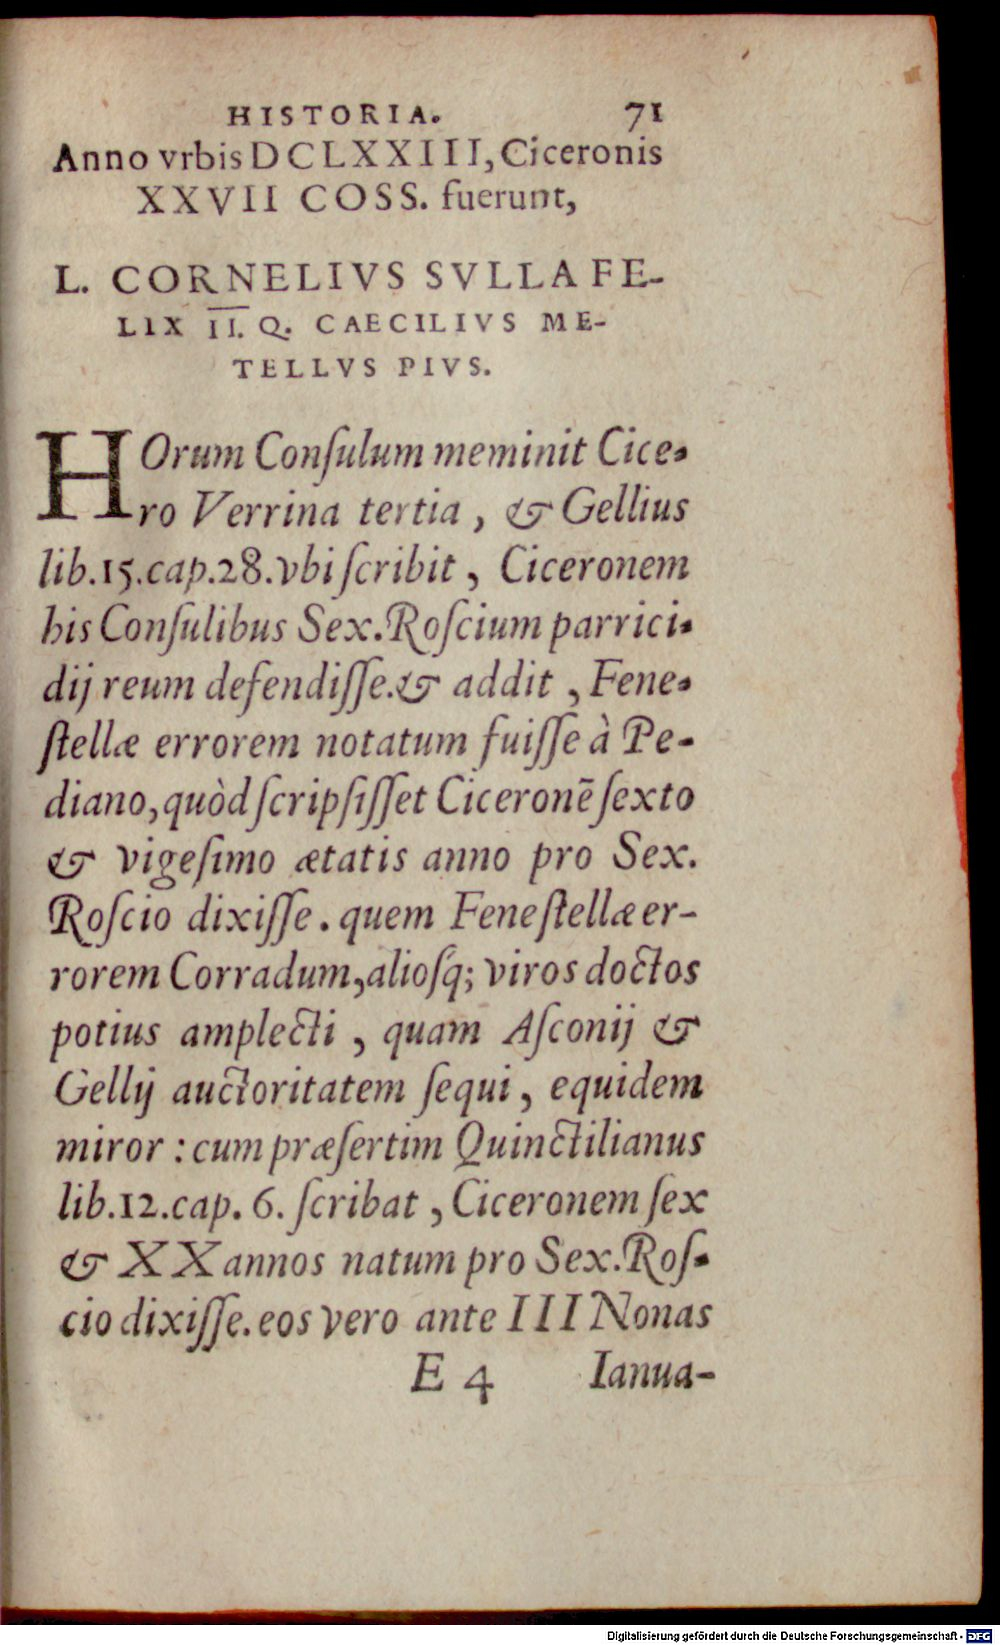 HISTORIA. 71
Anno vrbis DCLXXIII, Ciceronis
XXVII COSS. fuerunt,
L. CORNELIVS SVLLA FE-
LIX II. Q. CAECILIVS ME-
TELLVS PIVS.
HOrum Conſulum meminit Cice-
ro Verrina tertia, & Gellius
lib.15.cap.28.vbi ſcribit, Ciceronem
his Conſulibus Sex.Roſcium parrici-
dij reum defendiſſe.& addit, Fene-
ſtellæ errorem notatum fuiſſe à Pe-
diano, quòd ſcripſiſſet Ciceronē ſexto
& vigeſimo ætatis anno pro Sex.
Roſcio dixiſſe. quem Feneſtellæ er-
rorem Corradum, alioſq́; viros doctos
potius amplecti, quam Aſconij &
Gellij auctoritatem ſequi, equidem
miror: cum præſertim Quinctilianus
lib.12.cap. 6. ſcribat, Ciceronem ſex
& XX annos natum pro Sex.Roſ-
cio dixiſſe. eos vero ante III Nonas
E 4 Ianua-
Digitalisierung gefördert durch die Deutsche Forschungsgemeinschaft - DFG